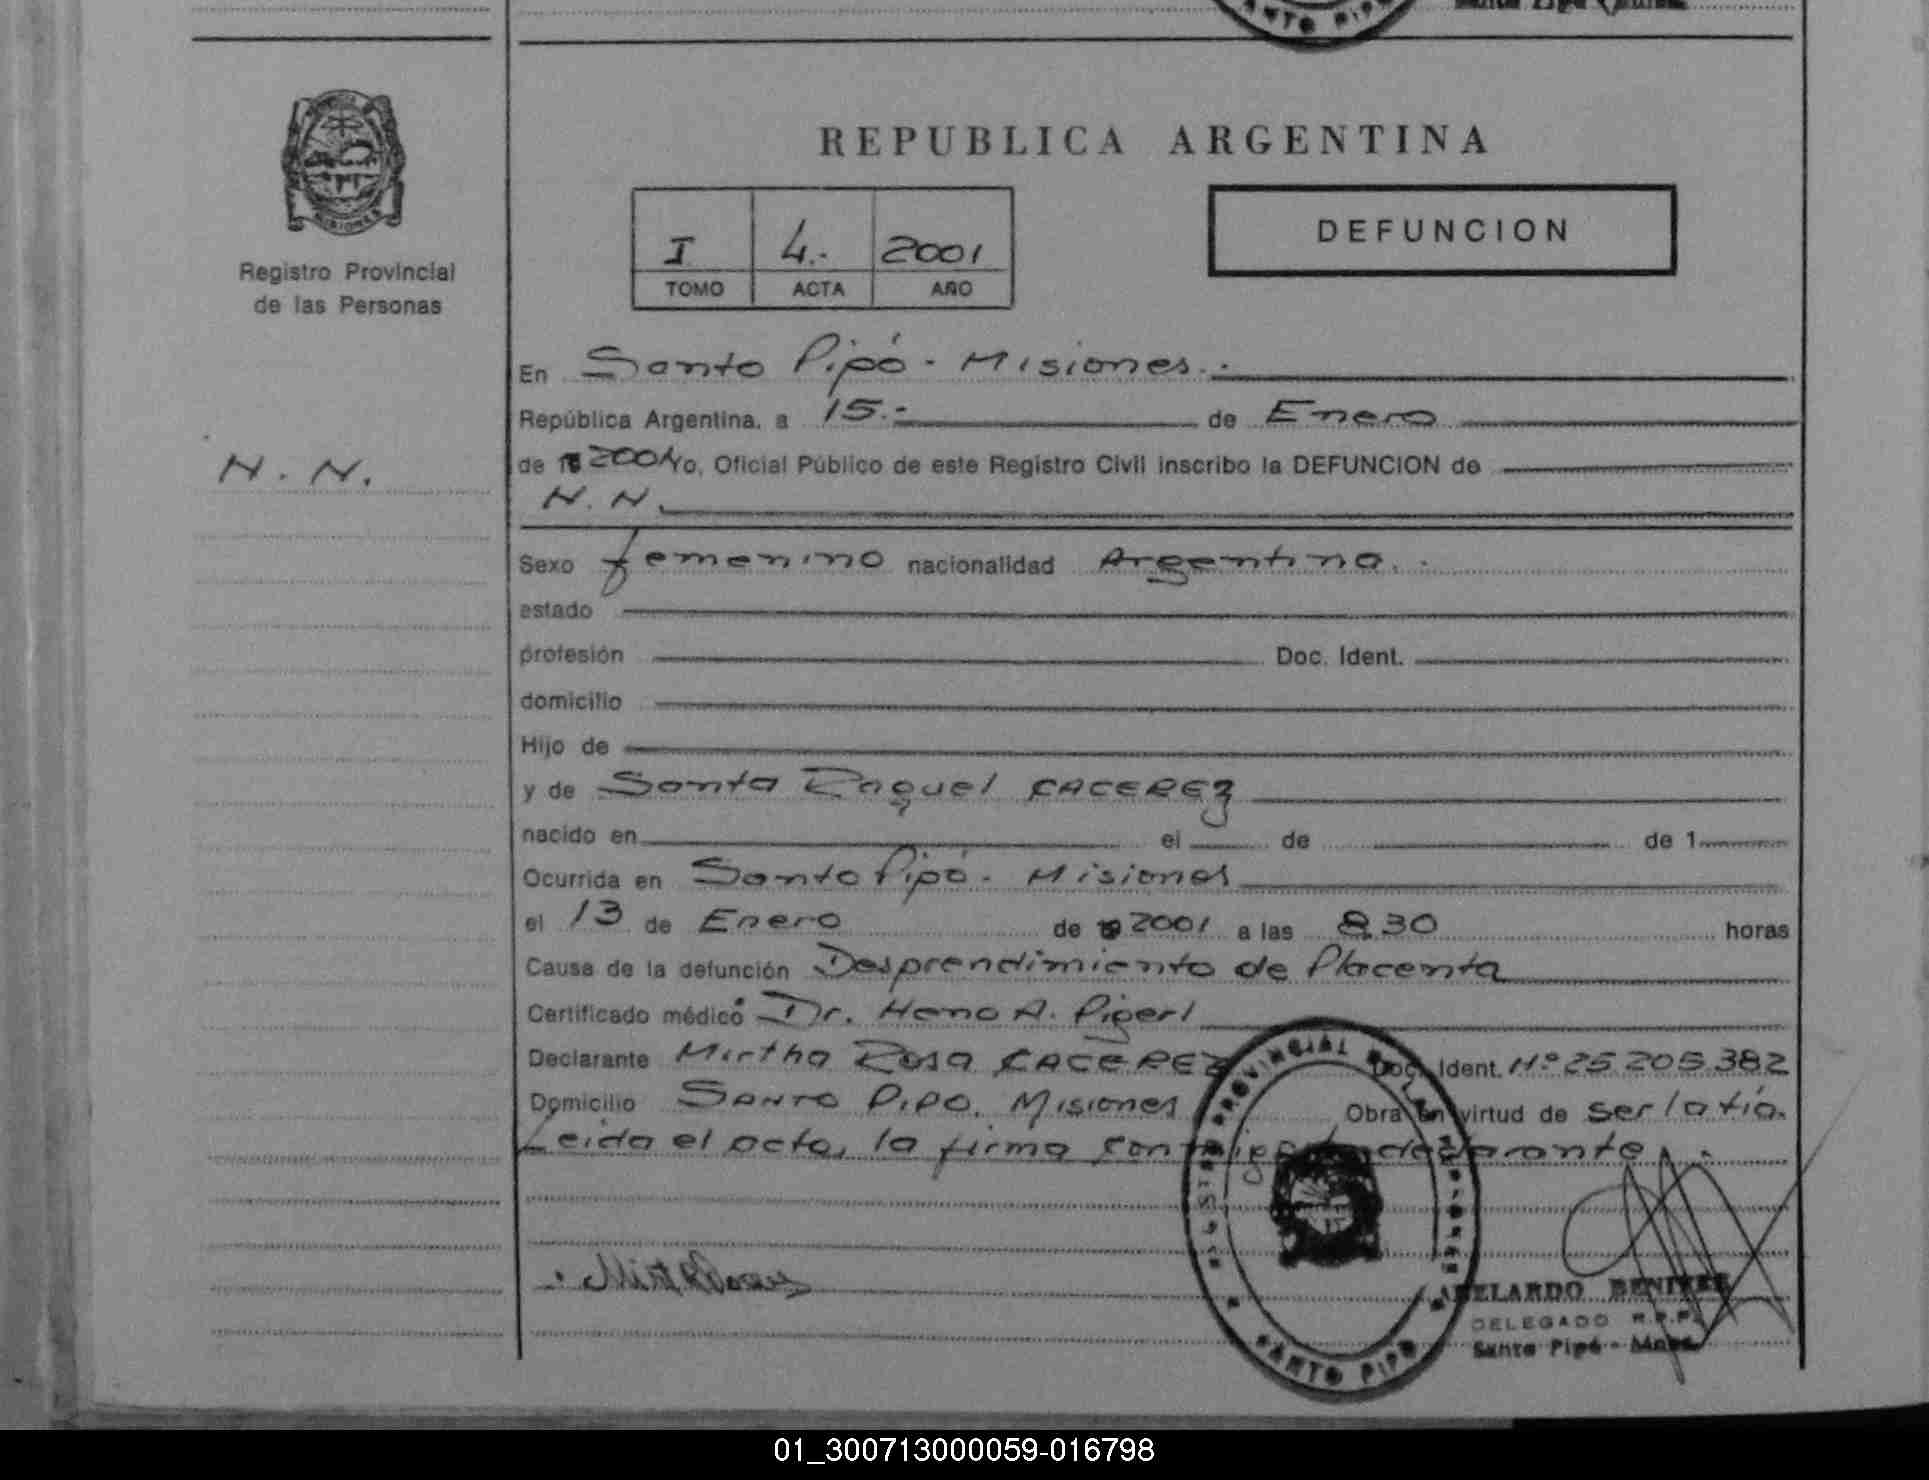 SANTO PIPO
REPUBLICA ARGENTINA
I 4.- 2001
TOMO ACTA AÑO
DEFUNCION
MISIONES
Registro Provincial
de las Personas
N. N.
En Santo Pipó - Misiones.-
República Argentina, a 15.- de Enero
de 2001 Yo, Oficial Público de este Registro Civil inscribo la DEFUNCION de
N. N.
Sexo femenino nacionalidad Argentina.-
estado
profesión Doc. Ident.
domicilio
Hijo de
y de Santa Raquel CACEREZ
nacido en el de de 1
Ocurrida en Santo Pipó - Misiones
el 13 de Enero de 2001 a las 8,30 horas
Causa de la defunción Desprendimiento de Placenta
Certificado médico: Dr. Hano A. Pigerl
Declarante Mirtha Rosa CACEREZ Doc. Ident. Nº 25 205 382
Domicilio SANTO PIPO. Misiones Obra en virtud de ser la tía.
Leida el acta, la firma conmigo la declarante.
REGISTRO PROVINCIAL DE LAS
SANTO PIPO
ABELARDO BENITEZ
DELEGADO R.P.P.
Santo Pipó - Mnes.
01_300713000059-016798